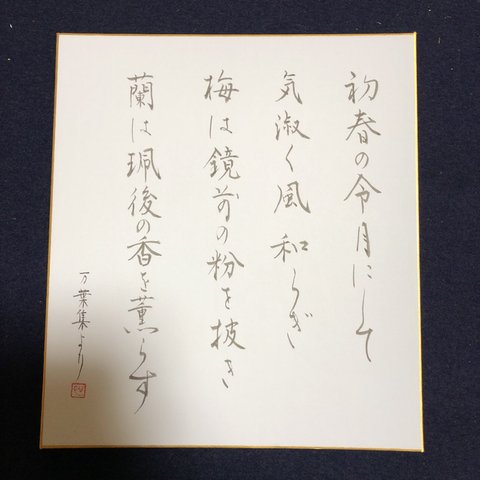 初春の令月にして
気淑く風和らぎ
梅は鏡前の粉を披き
蘭は珮後の香を薫らす
万葉集より